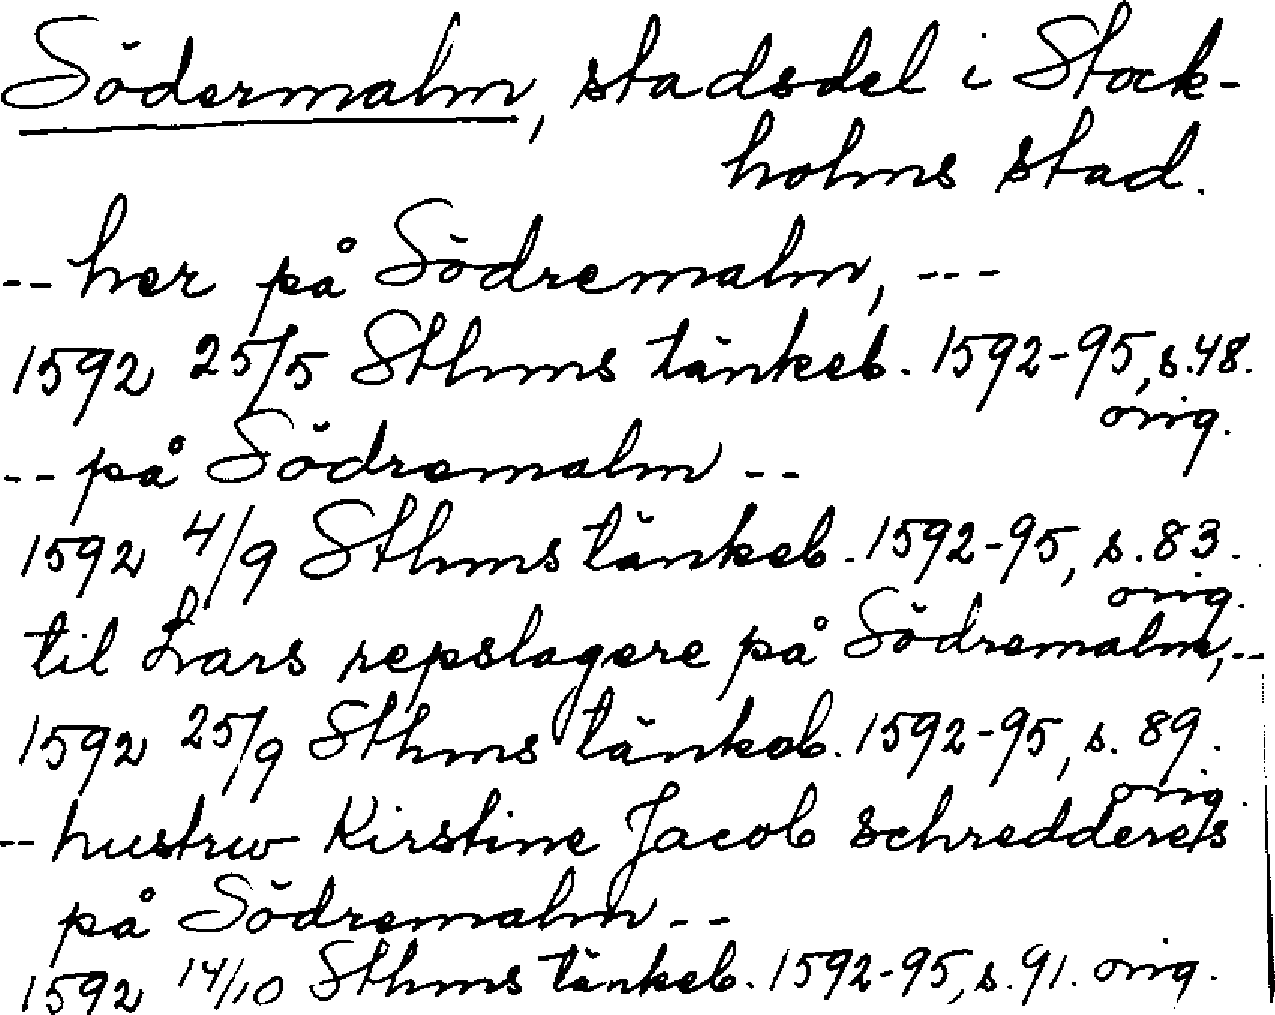 Södermalm, stadsdel i Stock-
holms stad.
-- her på Södremalm, ---
1592 25/5 Sthms tänkeb. 1592-95, s. 48.
orig.
-- på Södremalm --
1592 4/9 Sthms tänkeb. 1592-95, s. 83.
orig.
til Lars repslagere på Södremalm, --
1592 25/9 Sthms tänkeb. 1592-95, s. 89.
orig.
-- hustrw Kirstine Jacob schredderes
på Södremalm --
1592 14/10 Sthms tänkeb. 1592-95, s. 91. orig.